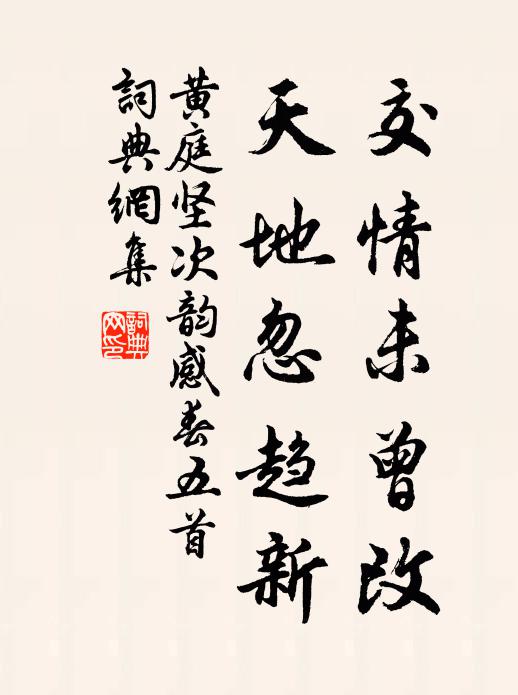 交情未曾改
天地忽趋新
黄庭坚次韵感春五首
詞典網集
詞典网印